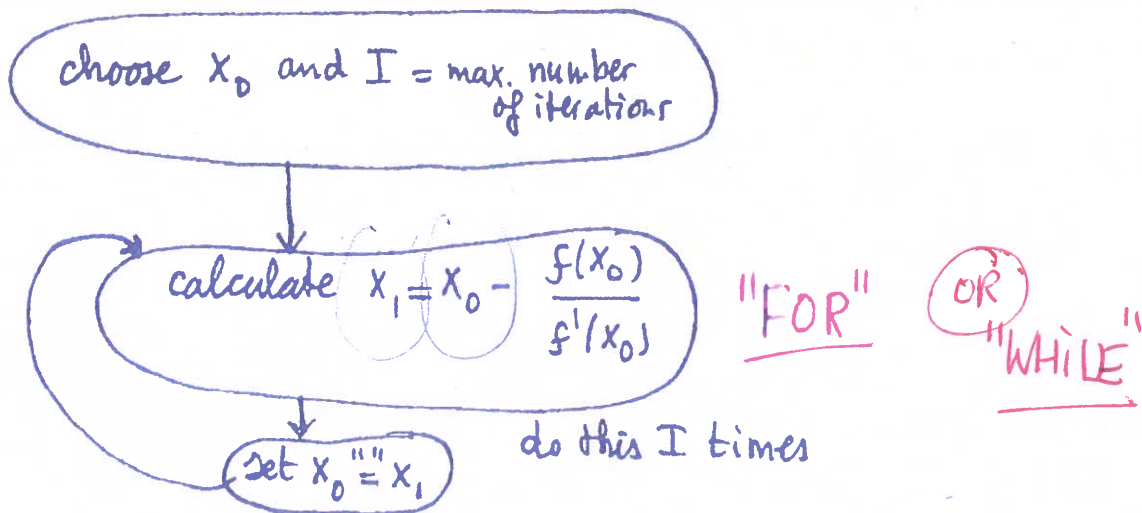 choose x₀ and I = max. number
of iterations
calculate x₁ = x₀ - f(x₀) / f'(x₀)
"FOR" OR
"WHILE"
do this I times
set x₀ "=" x₁